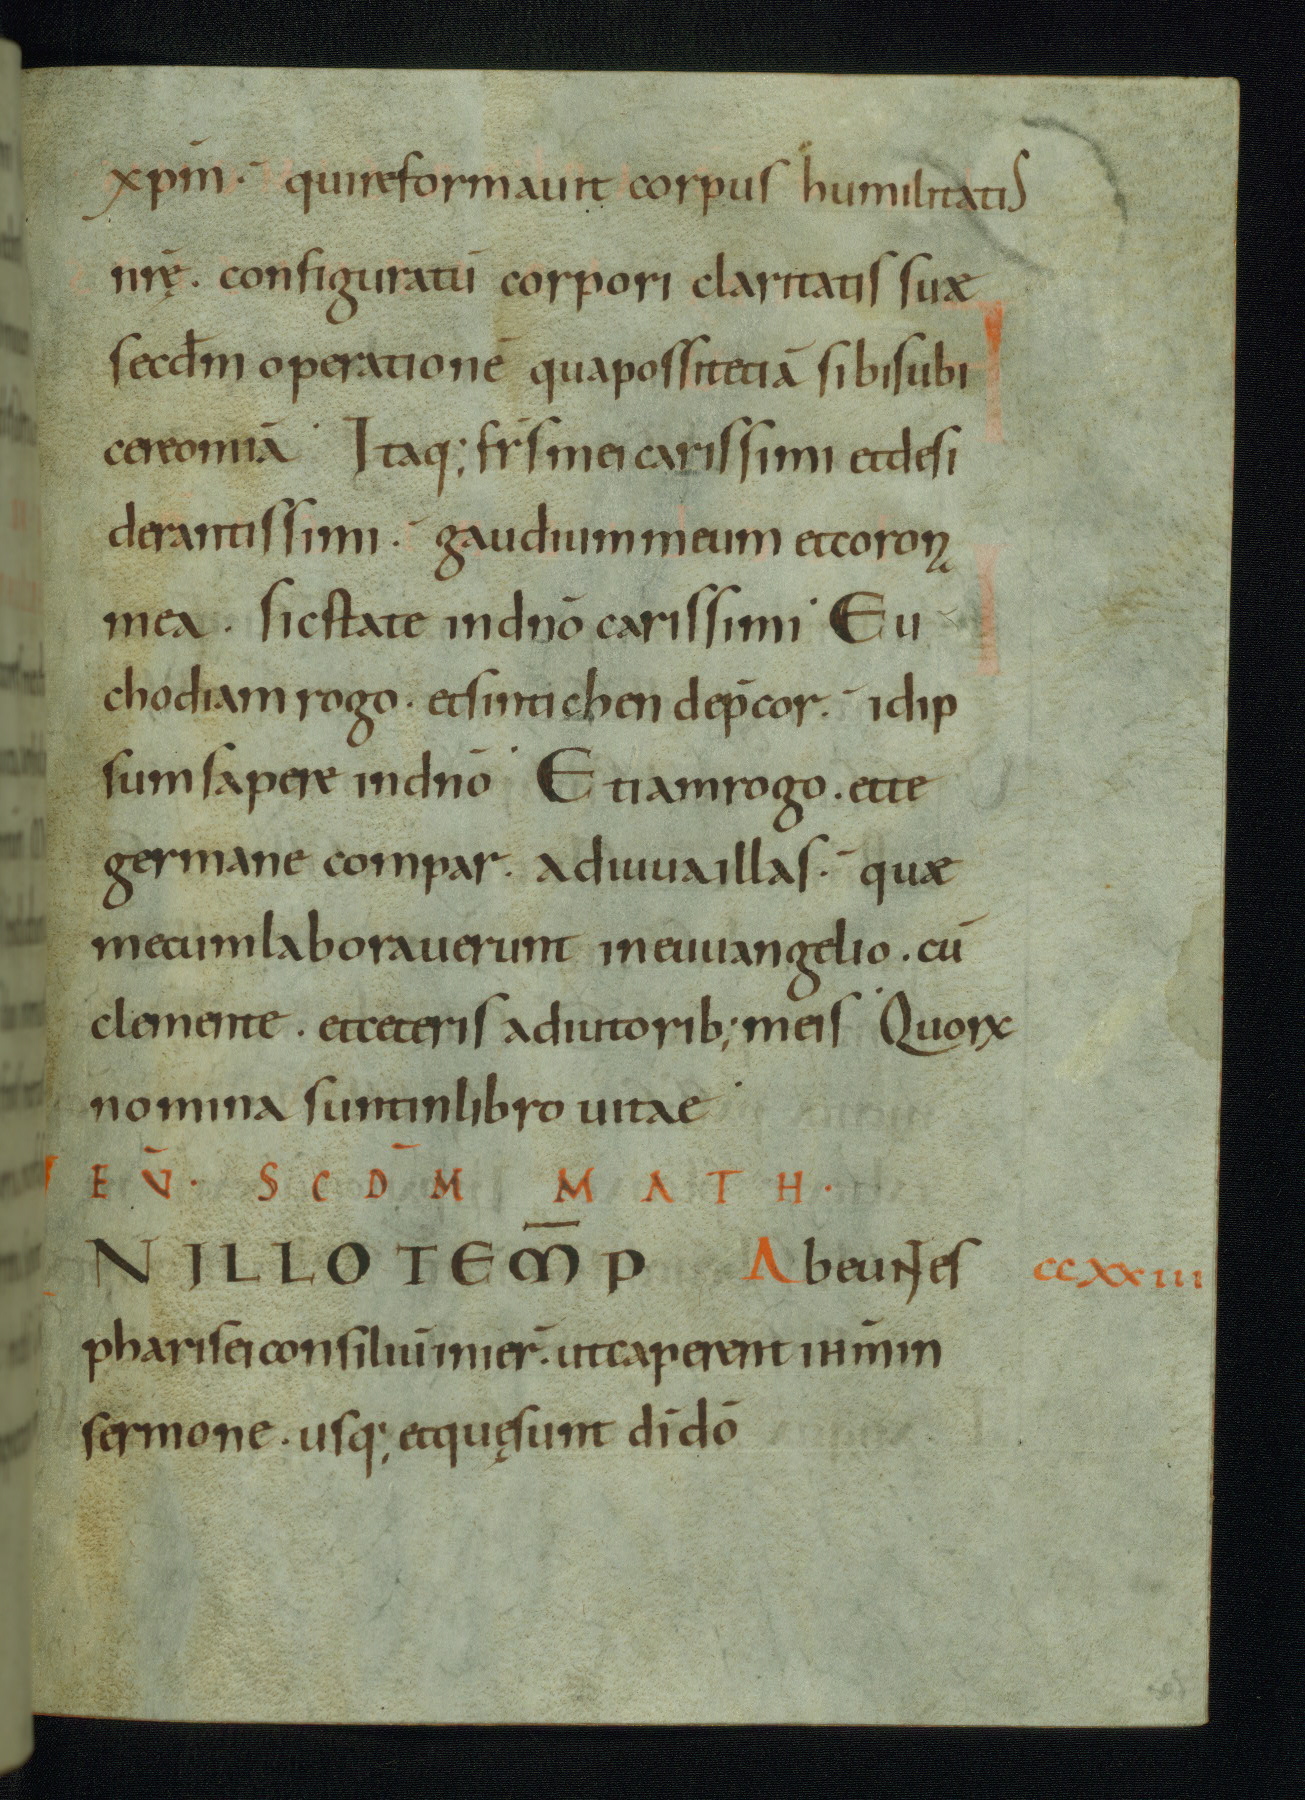 xp̄m · quireformauit corpus humilitatis
nr̄ę . configuratū corpori claritatis suæ
secdm̄ operationē quapossitetiā sibisubi
cereomiā · Itaq; fr̄s mei carissimi etdesi
derantissimi · gaudium meum etcoron
mea . sicstate indn̄o carissimi · Eu
chodiam rogo . etsintichen dep̄cor · idip
sum sapere indn̄o · Etiamrogo . ette
germane compar . adiuuaillas · quæ
mecumlaborauerunt ineuuangelio . cū
clemente . etceteris adiutorib; meis · Quorꝝ
nomina suntinlibro uitae ·
EV̄ · SCDM̄ MATH ·
N ILLO TEM̄P Abeuntes ccxxiii
pharisei consiliū inier̄ · utcaperent ih̄m in
sermone . usq; etquęsunt dī dō